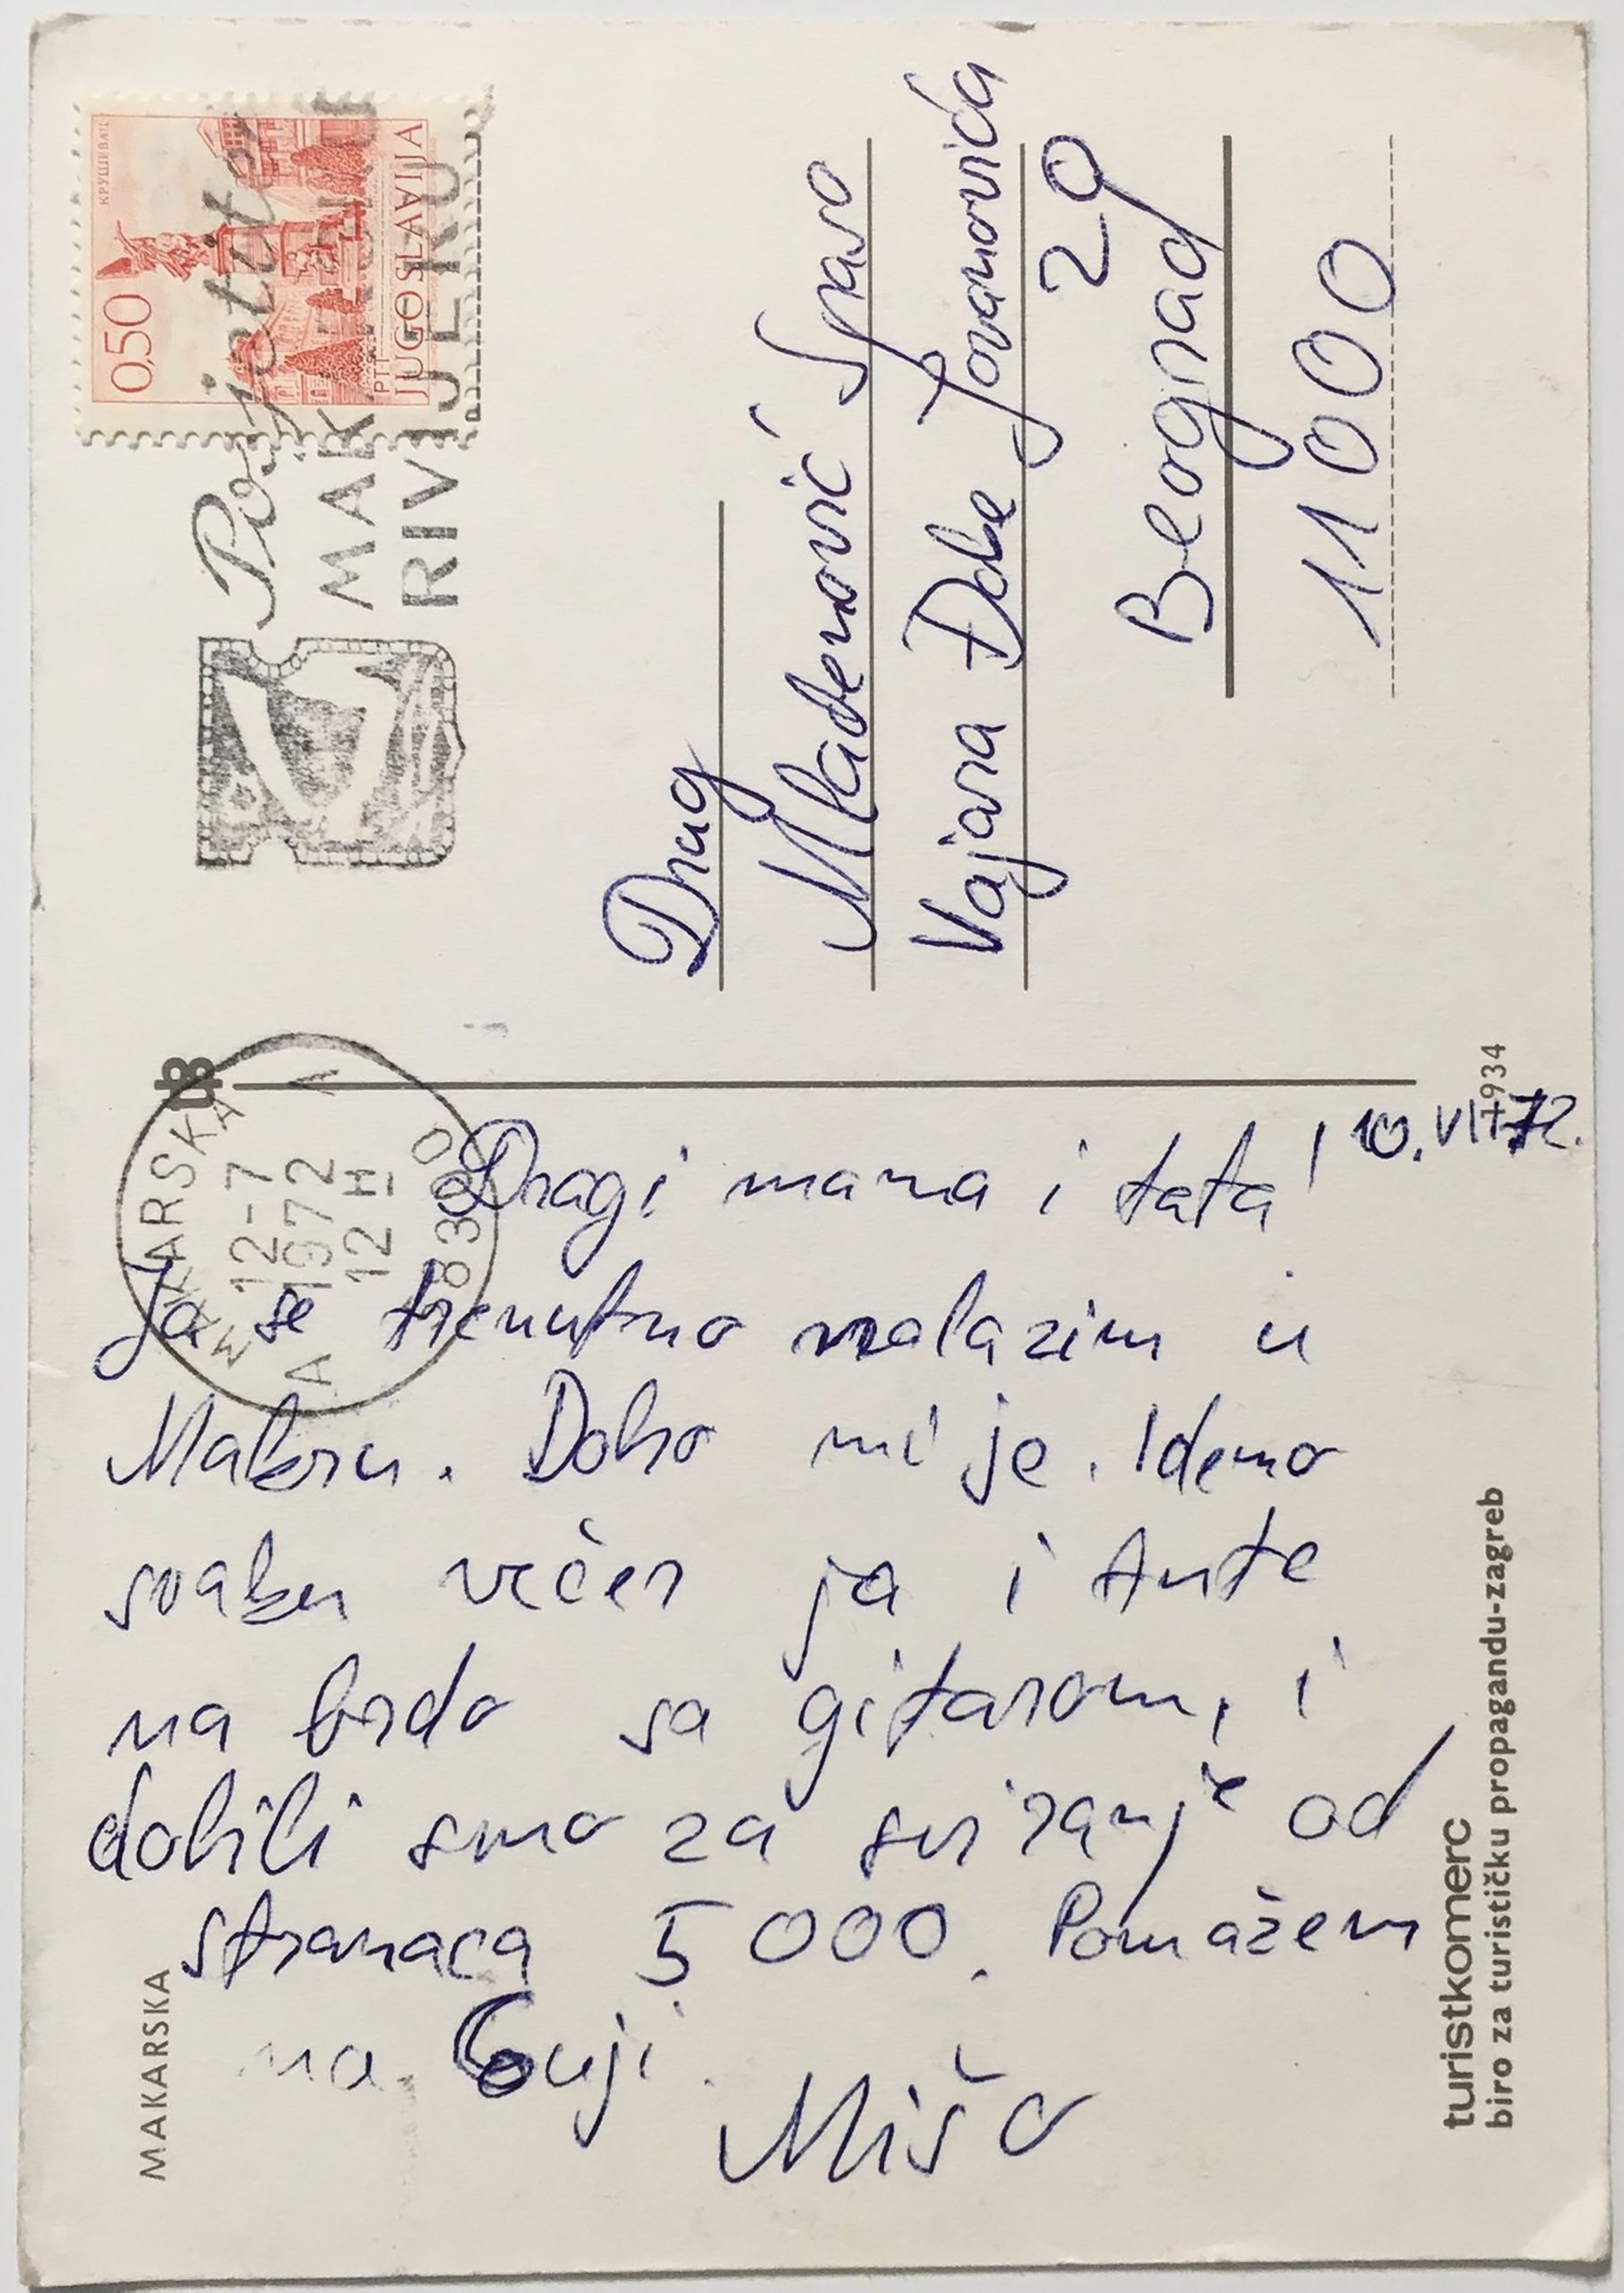 КРУШЕВАЦ
0,50
PTT
JUGOSLAVIJA
Posjetite
MAKARSKU
RIVIJERU
MAKARSKA
12-7
1972
12 H
A
Drug
Mladenović Spaso
Vajara Đoke Jovanovića
29
Beograd
11000
1934
10. VII 72.
Dragi mama i tata!
Ja se trenutno nalazim u
Makru. Dobro mi je. Idemo
svaku večer ja i Ante
na brdo sa gitarom, i
dobili smo za sviranje od
stranaca 5000. Pomažem
na
Mišo
MAKARSKA
turistkomerc
biro za turističku propagandu-zagreb